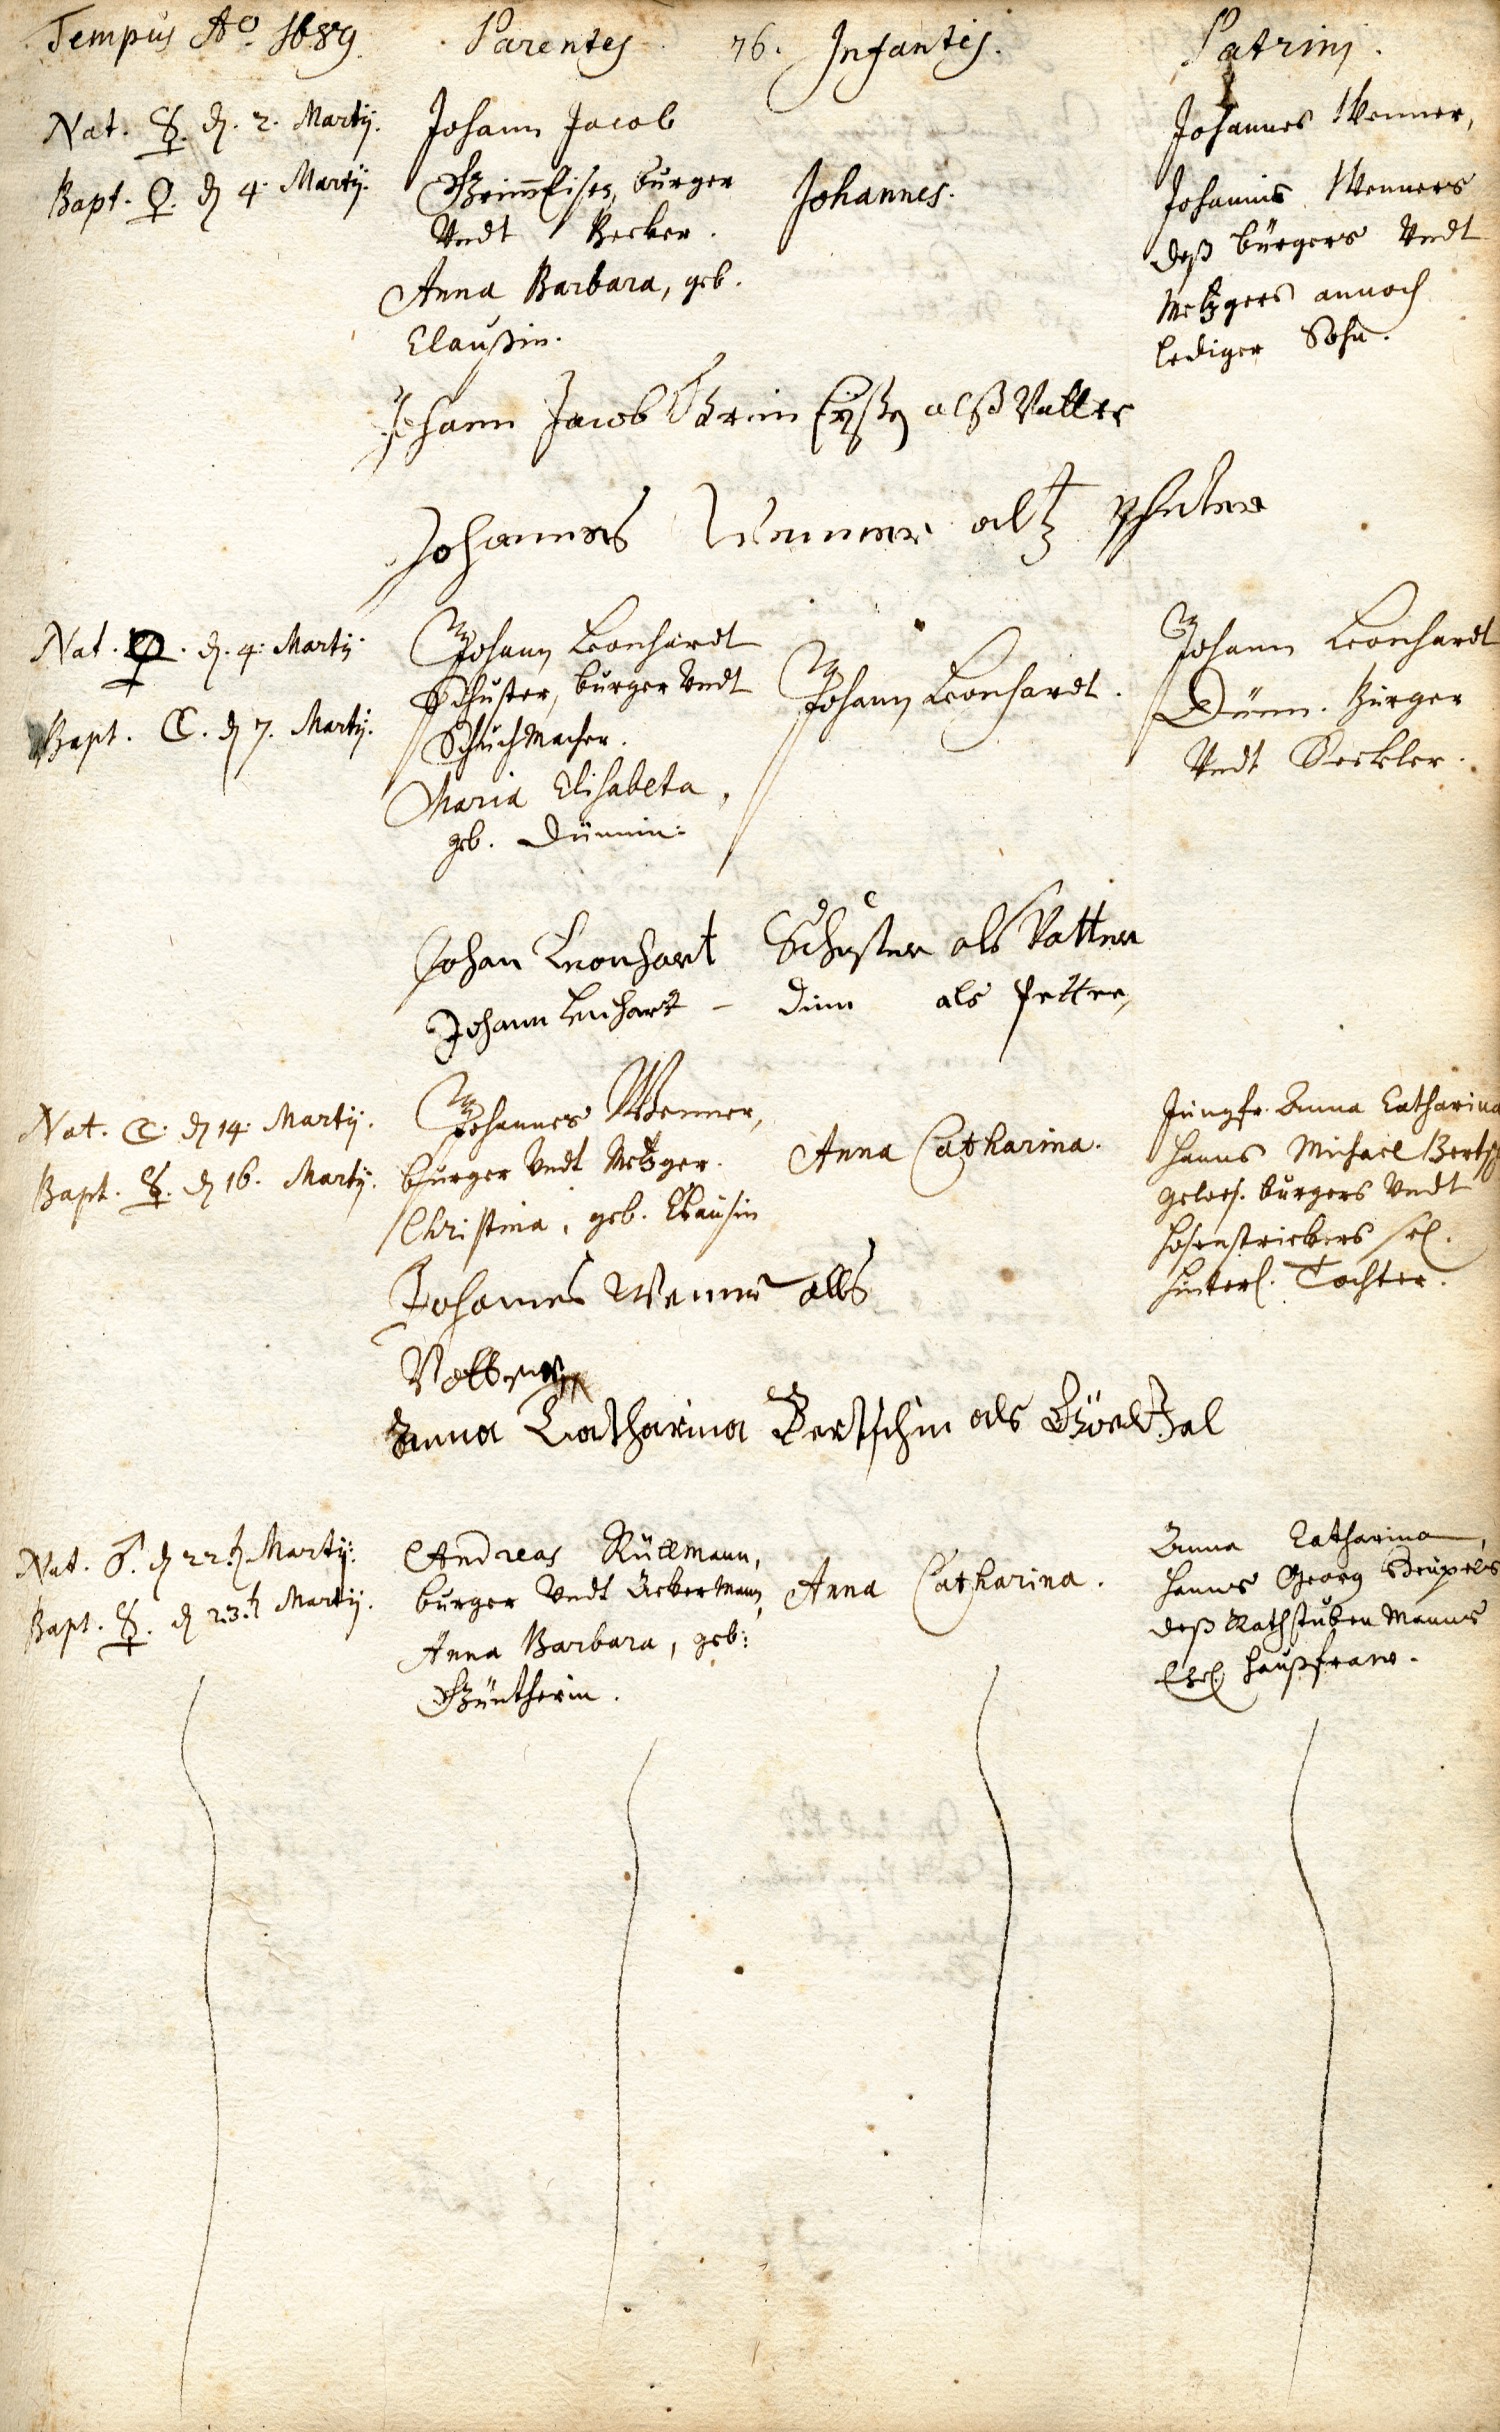 Tempus Aº. 1689. Parentes 76. Infantis. Patrini.
Nat. ☿. d. 2. Martij.
Bapt. ♀. d 4. Martij.
Johann Jacob
Grimmeisen, burger
Undt Becker.
Anna Barbara, geb.
Claußin.
Johannes.
Johannes Wenner,
Johannis Wenners
deß bürgers Undt
Metzgers annoch
lediger Sohn.
Johann Jacob Grim Eysen alß Vatter
Johannes Wenner altz
Nat. ♀. d. 4. Martij
Bapt. ☾. d 7. Martij.
Johann Leonhardt
Schuster, burger Undt
Schuchmacher.
Maria Elisabeta,
geb. Dünnin.
Johann Leonhardt.
Johann Leonhardt
Dünn. burger
Undt Seckler.
Johan Leonhart Schuster als Vatter
Johann Lenhart – Dinn als Petter,
Nat. ☾. d 14. Martij.
Bapt. ☿. d 16. Martij.
Johannes Wenner,
burger Undt Metzger.
Christina, geb. Clausin
Anna Catharina.
Jungfr. Anna Catharina
Hanns Michael Bertsch
gewes. burgers Undt
Hosenstrickers sel.
hinterl. Tochter.
Johannes Wenner alls
Vatter
Anna Catharina Bertschin als
Nat. ♂. d 22t Martij.
Bapt. ☿. d 23t Martij.
Andreas Rüllmann,
burger Undt Ackermann,
Anna Barbara, geb:
Güntherin.
Anna Catharina.
Anna Catharina,
Hanns Georg
deß Rathstuben Manns
Ehel. Haußfraw.